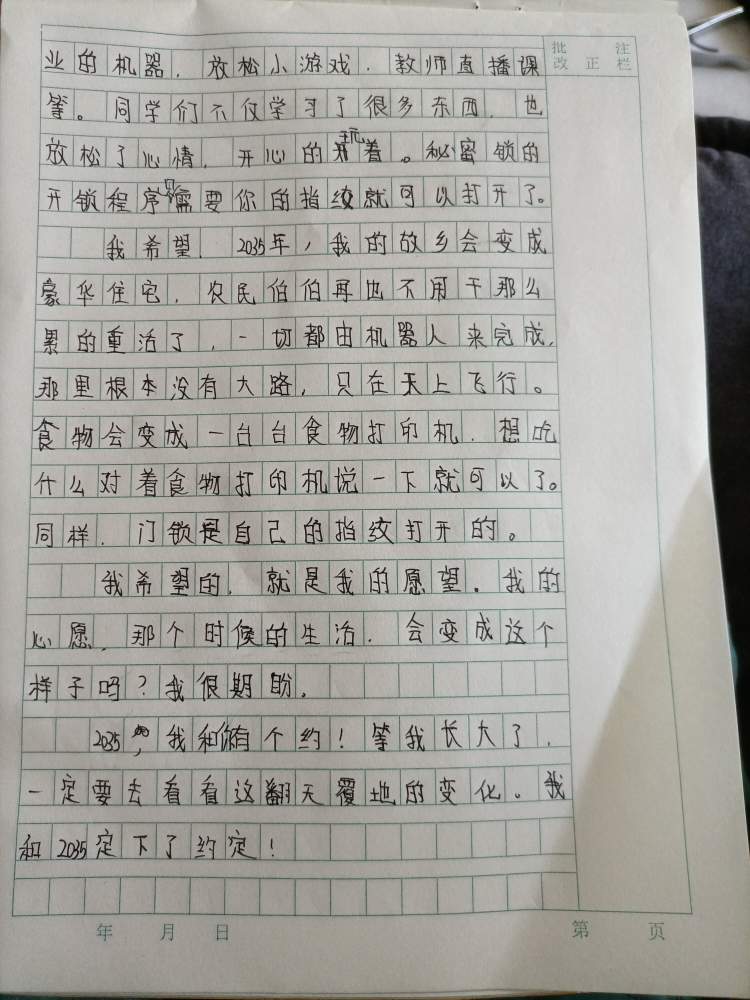 批 注
改 正 栏
业的机器，放松小游戏，教师直播课
等。同学们不仅学习了很多东西，也
放松了心情，开心的玩着。秘密锁的
开锁程序只需要你的指纹就可以打开了。
我希望，2035年，我的故乡会变成
豪华住宅，农民伯伯再也不用干那么
累的重活了，一切都由机器人来完成，
那里根本没有大路，只在天上飞行。
食物会变成一台台食物打印机，想吃
什么对着食物打印机说一下就可以了。
同样，门锁是自己的指纹打开的。
我希望的，就是我的愿望。我的
心愿，那个时候的生活，会变成这个
样子吗？我很期盼。
2035，我和你有个约！等我长大了，
一定要去看看这翻天覆地的变化。我
和2035定下了约定！
年 月 日
第 页